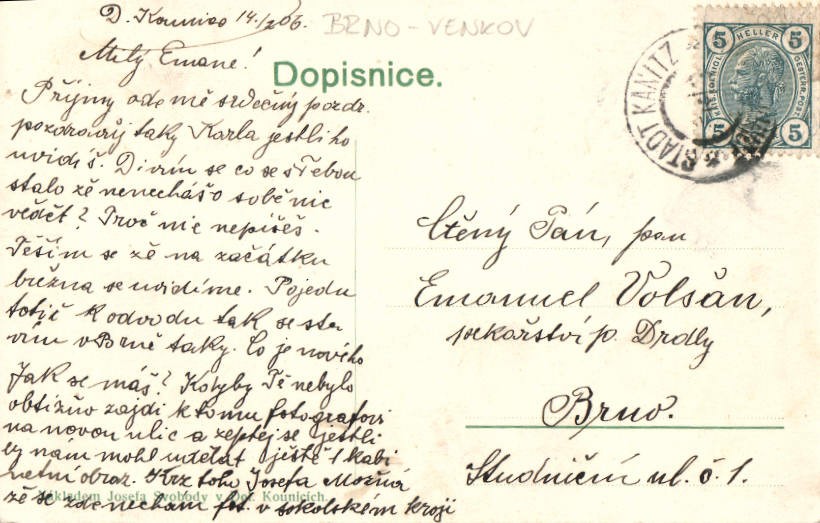 D. Kounice 14/2 06.
BRNO-VENKOV
Milý Emane!
Dopisnice.
Přijmy ode mě srdečný pozdr.
pozdravuj taky Karla jestli ho
uvidíš. Divím se co se s Tebou
stalo zě nenecháš o sobě nic
vědět? Proč nic nepíšěs.
Těším se zě na začátku
března se uvidíme. Pojedu
totiž k odvodu tak se sta
vím v Brně taky. Co je nového
Jak se máš? Kdyby Tě nebylo
obtížno zajdi k tomu fotografovi
na novou ulic a zeptej se jestli
by nám mohl udělat ještě 1 kabi
netní obraz. Josefa Možná
zě se zde nechám fot. v sokolském kroji
Nákladem Josefa Svobody v Dol. Kounicích.
5 HELLER 5
5 5
STADT KANITZ
Ctěný Pán, pan
Emanuel Volšán,
pekařství p. Drdly
Brno.
Studniční ul. č. 1.